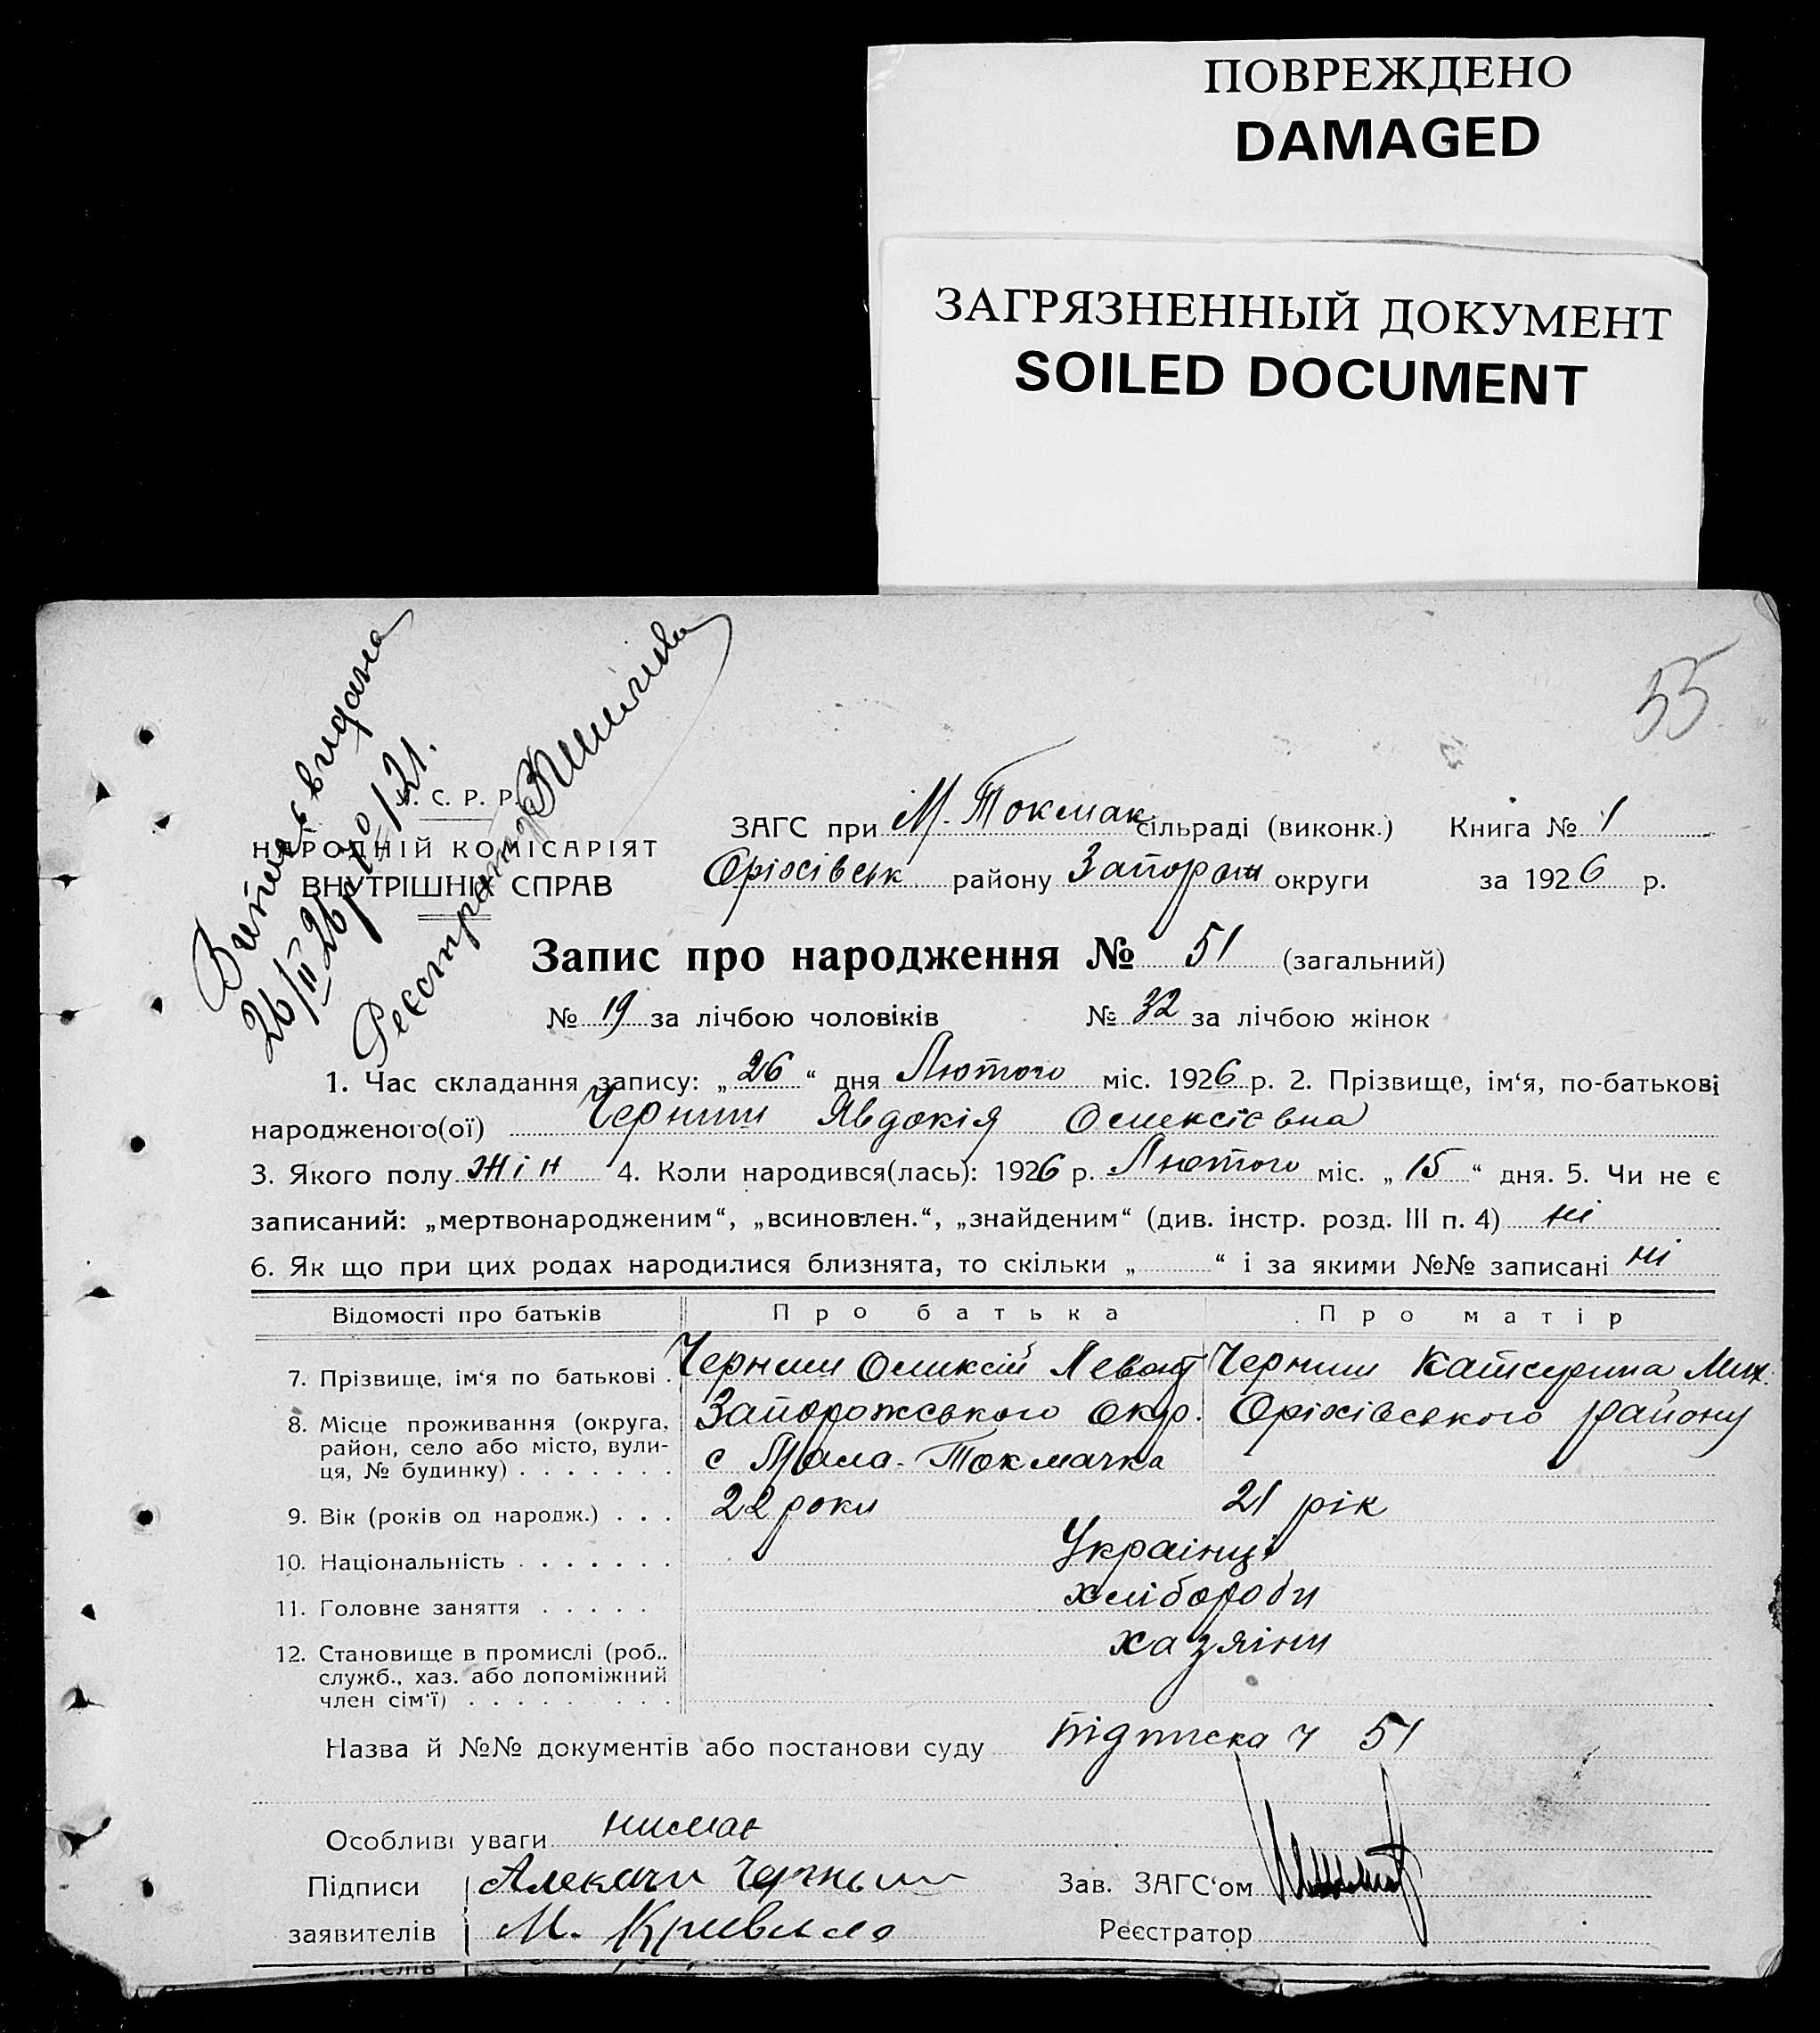 ПОВРЕЖДЕНО
DAMAGED
ЗАГРЯЗНЕННЫЙ ДОКУМЕНТ
SOILED DOCUMENT
55
видана
26/II 26
Реєстратор
С. Р. Р.
НАРОДНІЙ КОМІСАРІЯТ
ВНУТРІШНІХ СПРАВ
ЗАГС при М. Токмак сільраді (виконк.) Книга № 1
Оріхівськ району Запорож округи за 1926 р.
Запис про народження № 51 (загальний)
№ 19 за лічбою чоловіків № 32 за лічбою жінок
1. Час складання запису: „26“ дня Лютого міс. 1926 р. 2. Прізвище, ім‘я, по-батькові
народженого(ої) Черниш Явдокія Олексієвна
3. Якого полу жін 4. Коли народився(лась): 1926 р. Лютого міс. „15“ дня. 5. Чи не є
записаний: „мертвонародженим“, „всиновлен.“, „знайденим“ (див. інстр. розд. III п. 4) ні
6. Як що при цих родах народилися близнята, то скільки „ “ і за якими №№ записані ні
Відомості про батьків Про батька Про матір
7. Прізвище, ім‘я по батькові . Черниш Оликсій Левонт Черниш Катерина Мих.
8. Місце проживання (округа, район, село або місто, вулиця, № будинку) . . . . . . . Запорожського окр. Оріхівського району
с Мала-Токмачка
9. Вік (років од народж.) . . . 22 роки 21 рік
10. Національність . . . . . . . Українці
11. Головне заняття . . . . . хлібороби
12. Становище в промислі (роб., служб., хаз. або допоміжний член сім‘ї) . . . . . . . . . хазяіни
Назва й №№ документів або постанови суду підписка ч 51
Особливі уваги нимає
Підписи Алексей Черныш Зав. ЗАГС‘ом
заявителів М. Кривили Реєстратор